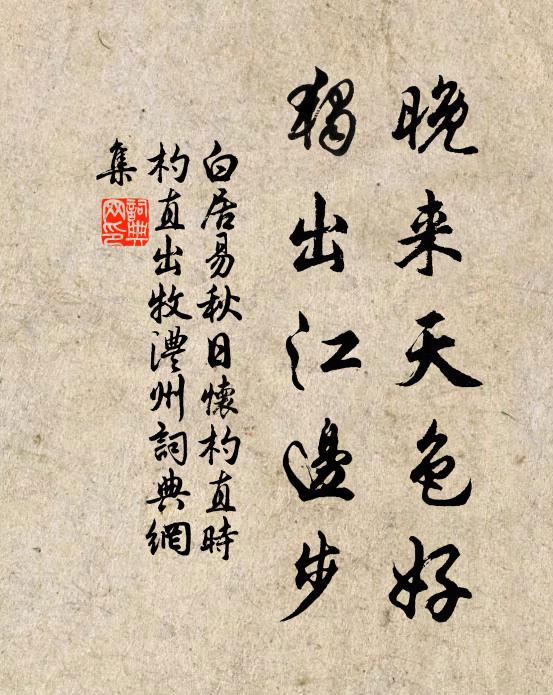 晚来天色好
獨出江邊步
白居易秋日懷杓直時
杓直出牧澧州詞典網
集
詞典網印